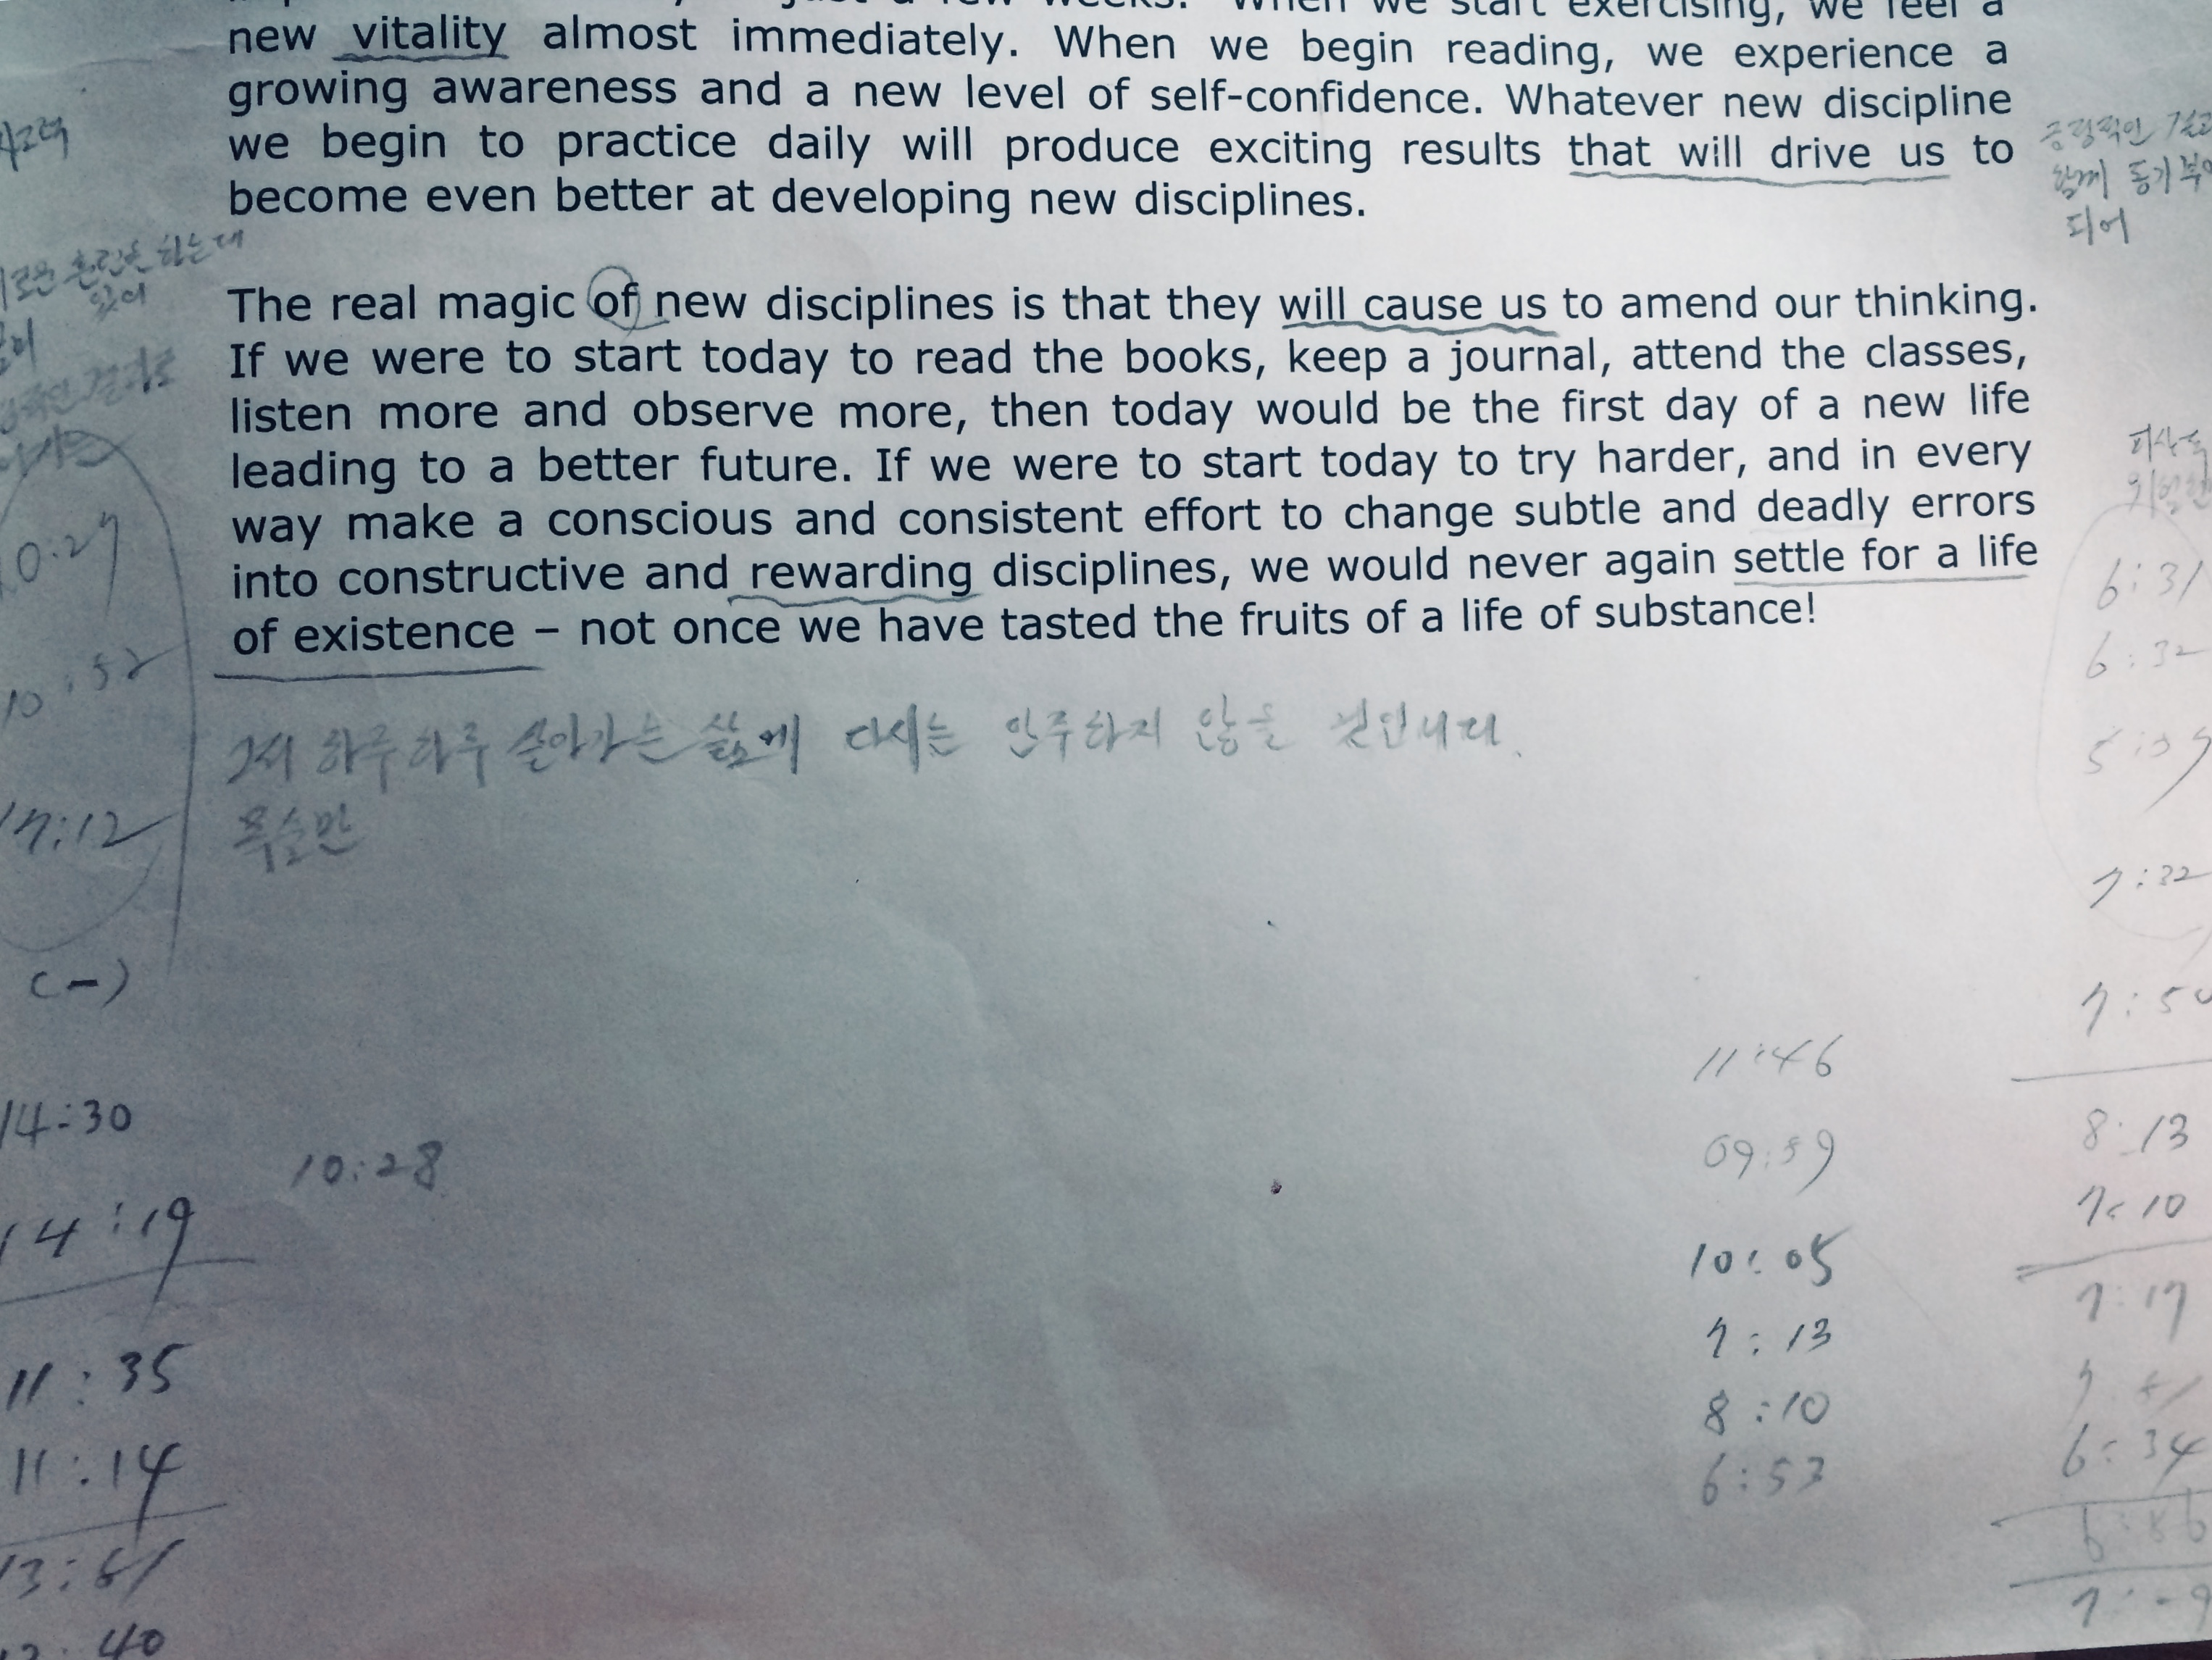 just a few weeks. When we start exercising, we feel a
new vitality almost immediately. When we begin reading, we experience a
growing awareness and a new level of self-confidence. Whatever new discipline
we begin to practice daily will produce exciting results that will drive us to
become even better at developing new disciplines.
긍정적인
함께 동기부
되어
하는데
있어
The real magic of new disciplines is that they will cause us to amend our thinking.
If we were to start today to read the books, keep a journal, attend the classes,
listen more and observe more, then today would be the first day of a new life
leading to a better future. If we were to start today to try harder, and in every
way make a conscious and consistent effort to change subtle and deadly errors
into constructive and rewarding disciplines, we would never again settle for a life
of existence – not once we have tasted the fruits of a life of substance!
그저 하루하루 살아가는 삶에 다시는 안주하지 않을 것입니다.
목숨만
10:27
10:52
17:12
(-)
14:30
10:28
14:19
11:35
11:14
40
11:46
09:59
10:05
7:13
8:10
6:53
6:31
6:32
7:32
7:50
8:13
7:10
7:17
6:34